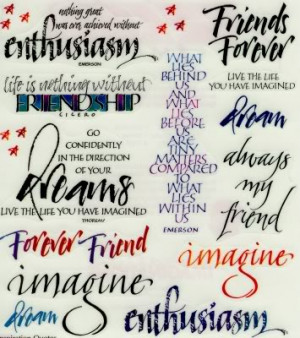 nothing great
was ever achieved without
enthusiasm
EMERSON
life is nothing without
FRIENDSHIP
CICERO
GO
CONFIDENTLY
IN THE DIRECTION
OF YOUR
dreams
LIVE THE LIFE YOU HAVE IMAGINED
THOREAU
Forever Friend
imagine
dream
WHAT
LIES
BEHIND
US
AND
WHAT
LIES
BEFORE
US
ARE
TINY
MATTERS
COMPARED
TO
WHAT
LIES
WITHIN
US
EMERSON
Friends
Forever
LIVE THE LIFE
YOU HAVE IMAGINED
dream
always
my
friend
imagine
enthusiasm
Quotes